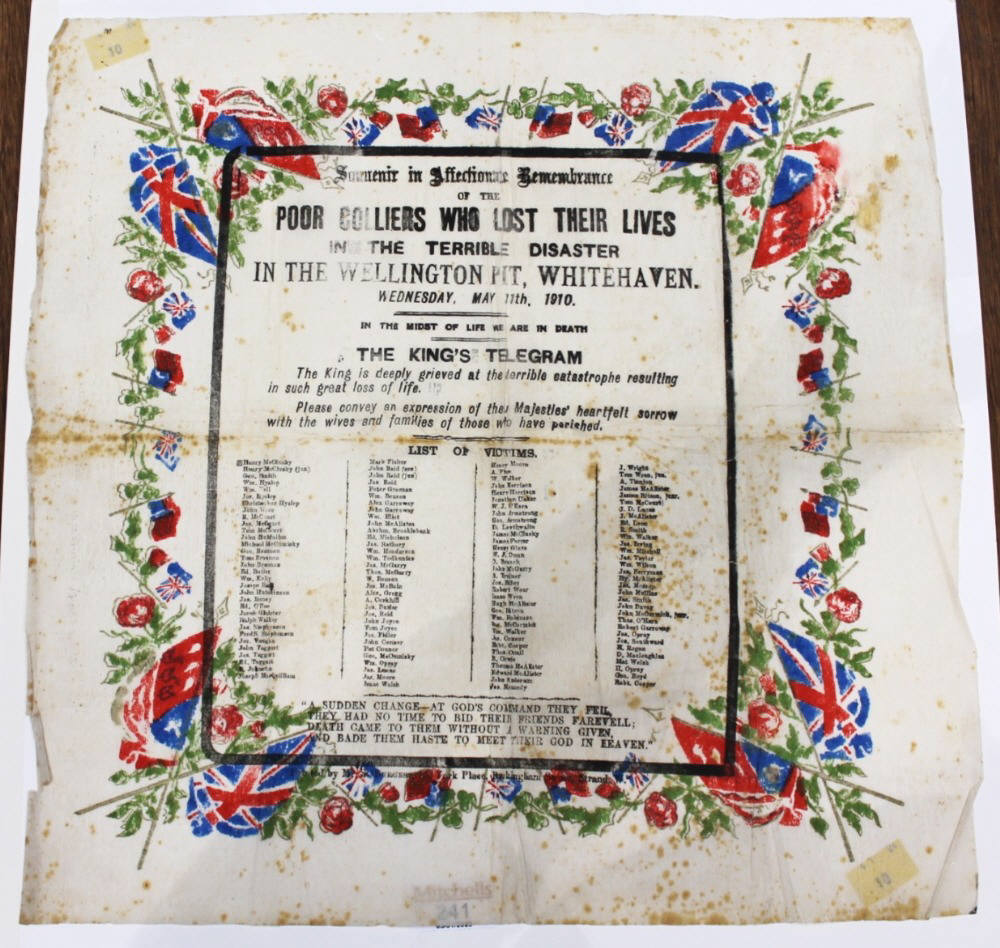 10
Souvenir in Affectionate Remembrance
OF THE
POOR COLLIERS WHO LOST THEIR LIVES
IN THE TERRIBLE DISASTER
IN THE WELLINGTON PIT, WHITEHAVEN.
WEDNESDAY, MAY 11th, 1910.
IN THE MIDST OF LIFE WE ARE IN DEATH
THE KING'S TELEGRAM
The King is deeply grieved at the terrible catastrophe resulting
in such great loss of life.
Please convey an expression of their Majesties' heartfelt sorrow
with the wives and families of those who have perished.
LIST OF VICTIMS.
Henry McClusky
Henry McClusky (jun)
Geo. Smith
Wm. Hyslop
John Wear
R. McCourt
Tom McCourt
John McMullin
Geo. Brannan
Tom Brannan
John Brannan
Ed. Bailey
Wm. Kelly
John Hutchinson
Jos. Roney
Jacob Gilhster
Ralph Walker
Jas. Stephenson
Jos. Vaughn
John Taggart
Jos. Taggart
Ed. Taggart
R. Johnston
Joseph
Mark Fisher
John Reid (sen)
John Reid (jun)
Jas. Reid
Peter Grosman
Wm. Benson
Alex Garroway
John Garroway
Wm. Elliot
John McAllister
Abrhm. Brocklebank
Ed. Nicholson
Jas. Rathery
Wm. Henderson
Jas. McGarry
Thos. McGarry
W. Benson
Jos. McBain
Alex. Gregg
A. Corkhill
Jos. Baxter
Jos. Reid
John Joyce
Tom Joyce
Jos. Fidler
John Connor
Pat Connor
Wm. Gypsy
Jas. Lewns
Jas. Moore
Isaac Welsh
Henry Moore
A. Pies
W. Walker
John Harrison
Henry Harrison
W. J. O'Hara
John Armstrong
Geo. Armstrong
D. Lucthwaite
James McClusky
James Porter
Henry Glaze
W. F. Dunn
D. Branch
John McGarry
A. Trainer
Jos. Riley
Robert Wear
Isaac Wren
Hugh McAllister
Geo. Hinton
Wm. Robinson
Jos. McCormick
Tos. Walker
Jo. Connor
Robt. Cooper
Thos. Casill
R. Crowie
Thomas McAllister
Edward McAllister
John Anderson
Jos. Kennedy
J. Wright
Tom Wren, jun.
James McAllister
James Hitson, junr.
Tom McCourt
J. D. Lucas
J. McAllister
Ed. Lenn
R. Smith
Wm. Walker
Jos. Irving
Wm. Mitchell
Jas. Taylor
Wm. Wilson
Jas. Ferryman
Hy. McAllister
John Mullins
Jas. Smith
John Davey
John McCormick, junr.
Thos. O'Hara
Robert Garroway
Jas. Opray
Jos. Southward
H. Regan
D. Maclaughlan
Mat Welsh
H. Opray
Geo. Boyd
Robt. Cooper
"A SUDDEN CHANGE—AT GOD'S COMMAND THEY FELL,
THEY HAD NO TIME TO BID THEIR FRIENDS FAREWELL;
DEATH CAME TO THEM WITHOUT A WARNING GIVEN,
AND BADE THEM HASTE TO MEET THEIR GOD IN HEAVEN."
by York Place, Buckingham Street, Strand
10
Mitchells
241